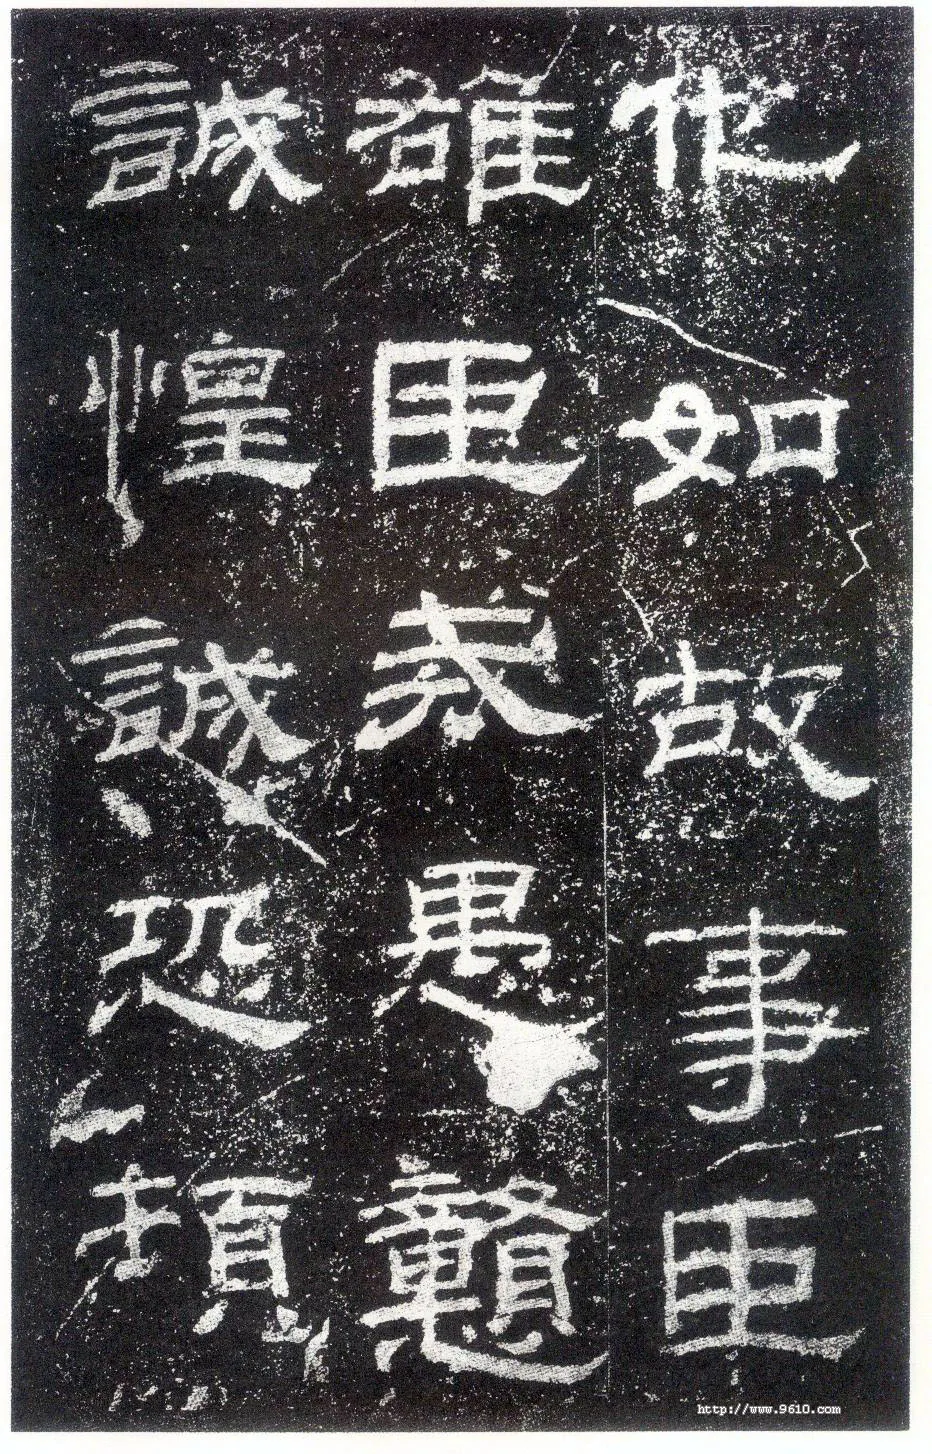 他如故事臣
雄臣戒愚戇
誠惶誠恐頓
http://www.9610.com